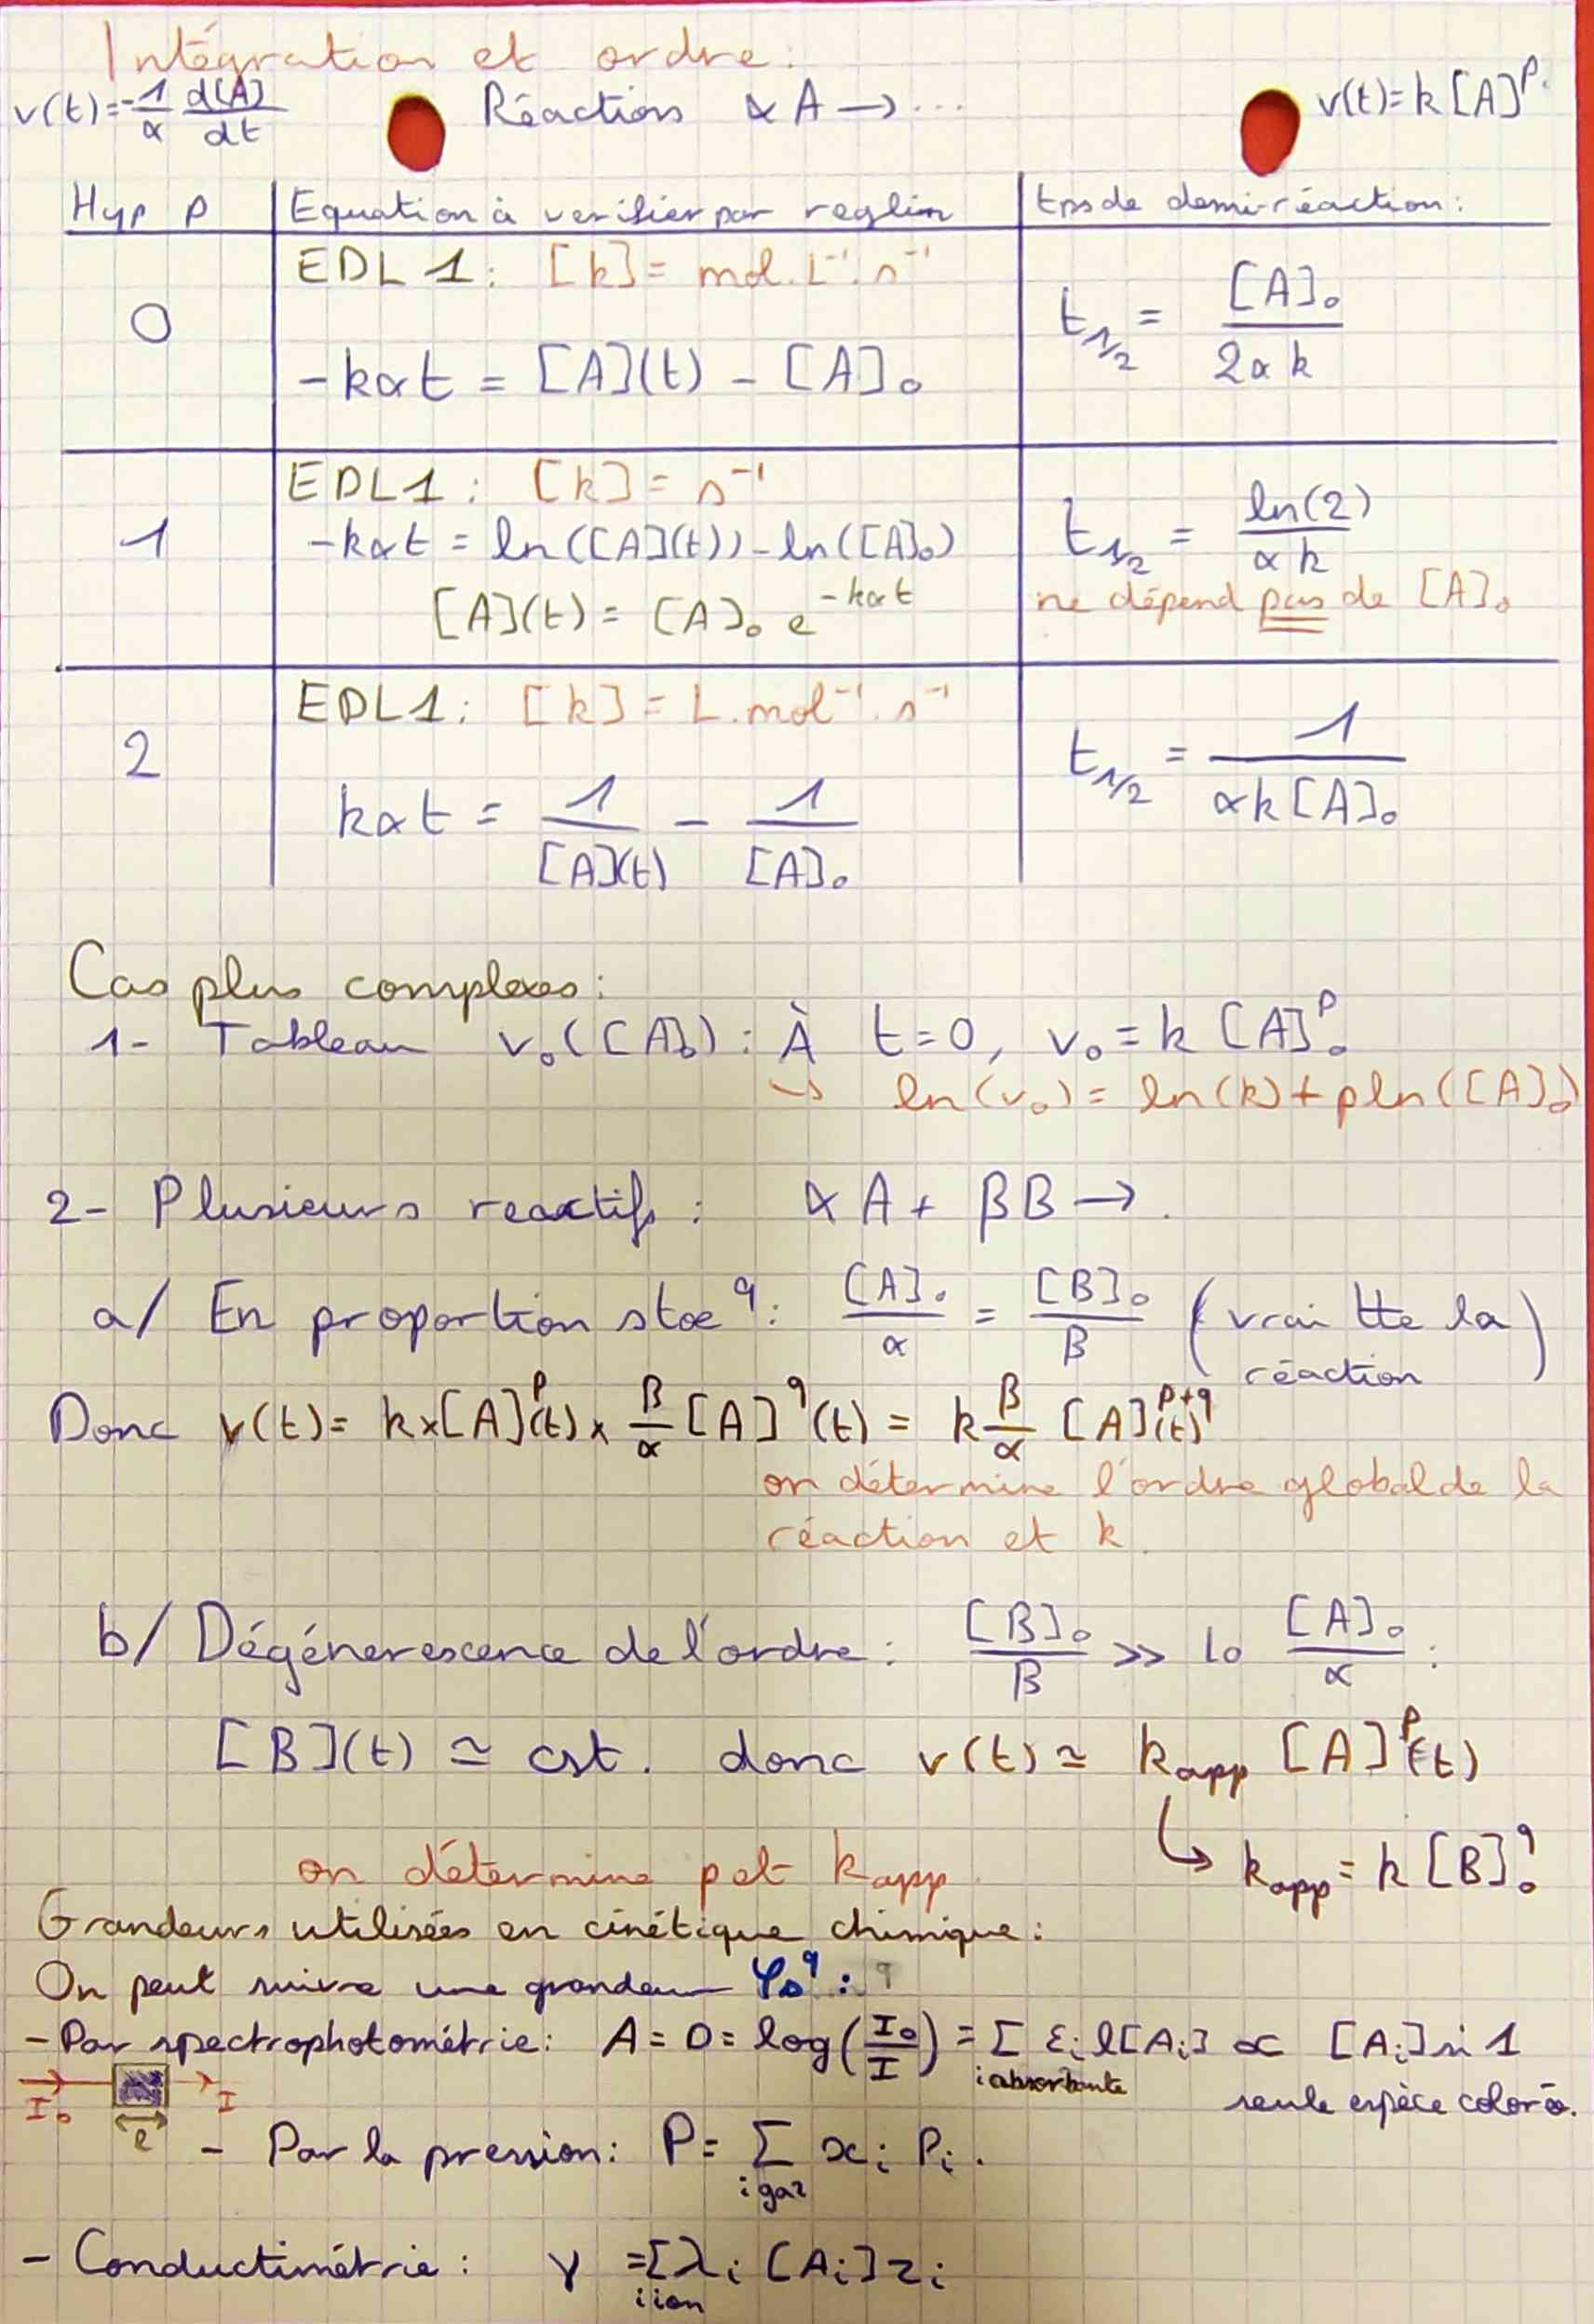 Intégration et ordre:
v(t)=-1/α d[A]/dt Réactions αA→... v(t)=k[A]^p.
Hyp p | Equation à verifier par reglin | tps de demi-réaction:
EDL1: [k]= mol.L⁻¹.s⁻¹
0 | -kαt = [A](t) - [A]₀ | t_1/2 = [A]₀/(2αk)
EDL1: [k]= s⁻¹
1 | -kαt = ln([A](t)) - ln([A]₀) | t_1/2 = ln(2)/(αk)
[A](t) = [A]₀ e^(-kαt) | ne dépend pas de [A]₀
EDL1: [k] = L.mol⁻¹.s⁻¹
2 | kαt = 1/[A](t) - 1/[A]₀ | t_1/2 = 1/(αk[A]₀)
Cas plus complexes:
1- Tableau v₀([A]₀): À t=0, v₀=k[A]₀^p
↳ ln(v₀) = ln(k)+pln([A]₀)
2- Plusieurs reactifs: αA + βB →.
a/ En proportion stoe^q: [A]₀/α = [B]₀/β (vrai tte la
réaction)
Donc v(t)= k×[A]^p(t)× β/α [A]^q(t) = k β/α [A]^(p+q)(t)
on détermine l'ordre global de la
réaction et k.
b/ Dégénerescence de l'ordre: [B]₀/β >> 10 [A]₀/α:
[B](t) ≃ cst. donc v(t) ≃ k_app [A]^p(t)
↳ k_app = k[B]₀^q
on détermine p et k_app.
Grandeurs utilisées en cinétique chimique:
On peut suivre une grandeur φs^q:
- Par spectrophotométrie: A = D = log(I₀/I) = Σ εᵢ l[Aᵢ] ∝ [Aᵢ] si 1
i absorbante seule espèce colorée.
I₀ l I
- Par la pression: P= Σ xᵢ Pᵢ.
i gaz
- Conductimétrie: γ = Σ λᵢ [Aᵢ] zᵢ
i ion